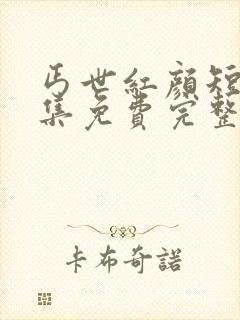 丐世紅顏短
集免費完整
卡布奇諾